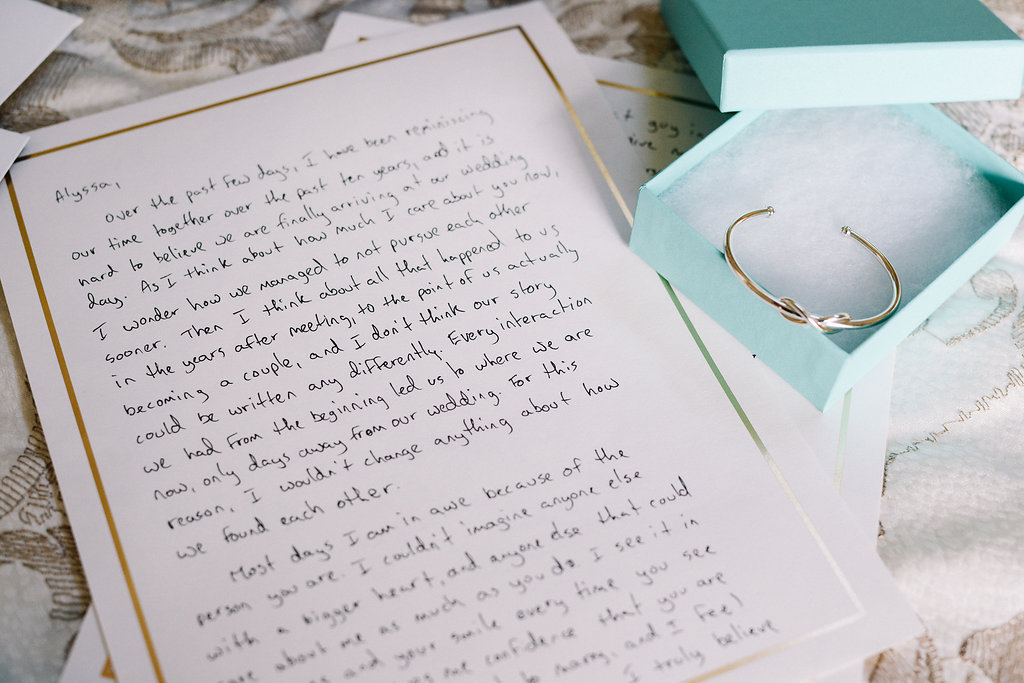 Alyssa,
over the past few days, I have been reminiscing
our time together over the past ten years, and it is
hard to believe we are finally arriving at our wedding
day. As I think about how much I care about you now,
I wonder how we managed to not pursue each other
sooner. Then I think about all that happened to us
in the years after meeting, to the point of us actually
becoming a couple, and I don't think our story
could be written any differently. Every interaction
we had from the beginning led us to where we are
now, only days away from our wedding. For this
reason, I wouldn't change anything about how
we found each other.
Most days I am in awe because of the
person you are. I couldn't imagine anyone else
with a bigger heart, and anyone else that could
care about me as much as you do. I see it in
and your smile every time you see
me confidence that you are
to marry, and I feel
I truly believe
guy in